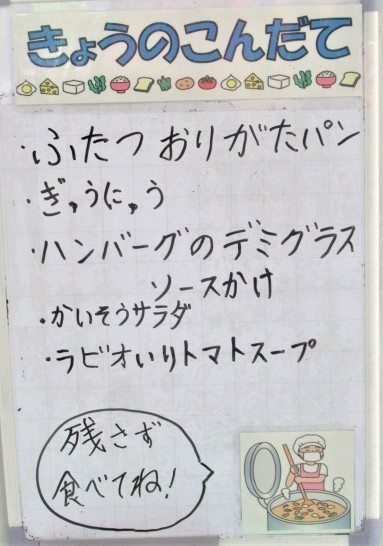 きょうのこんだて
・ふたつおりがたパン
・ぎゅうにゅう
・ハンバーグのデミグラス
ソースかけ
・かいそうサラダ
・ラビオいりトマトスープ
残さず
食べてね!